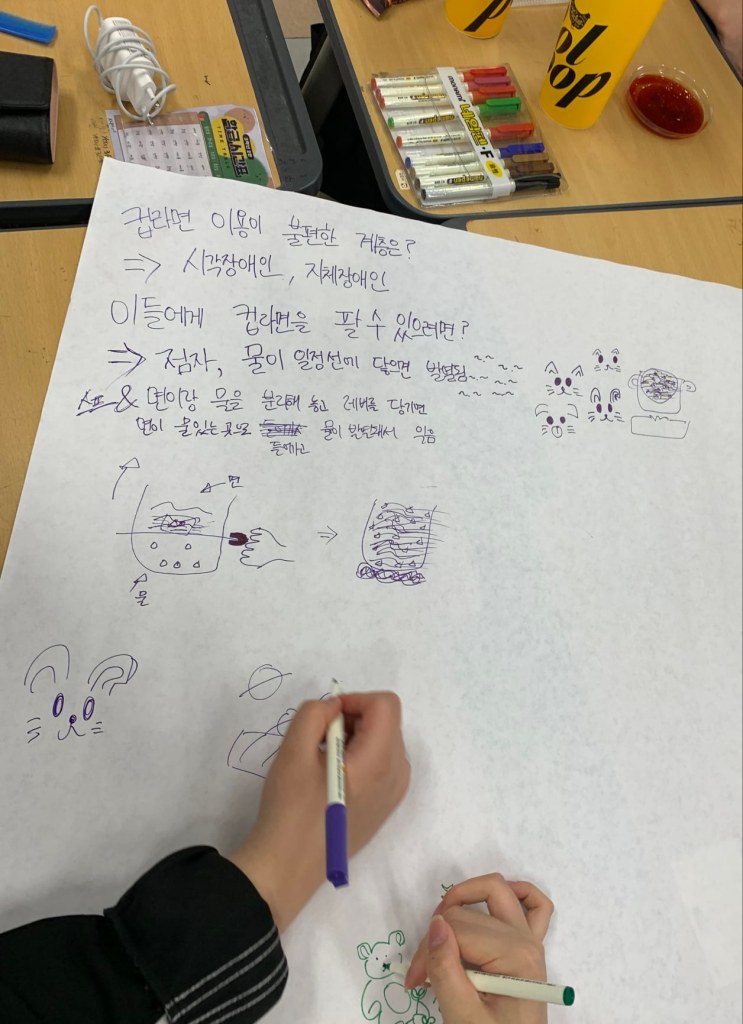 ol
pop
Namepen
네임펜·F
컵라면 이용이 불편한 계층은?
⇒ 시각장애인, 지체장애인
이들에게 컵라면을 팔 수 있으려면?
⇒ 점자, 물이 일정선에 닿으면 발열됨
& 면이랑 물을 분리해 놓고 레버를 당기면
면이 물있는곳으로 들어가고 물이 발열돼서 익음
면
⇒
물